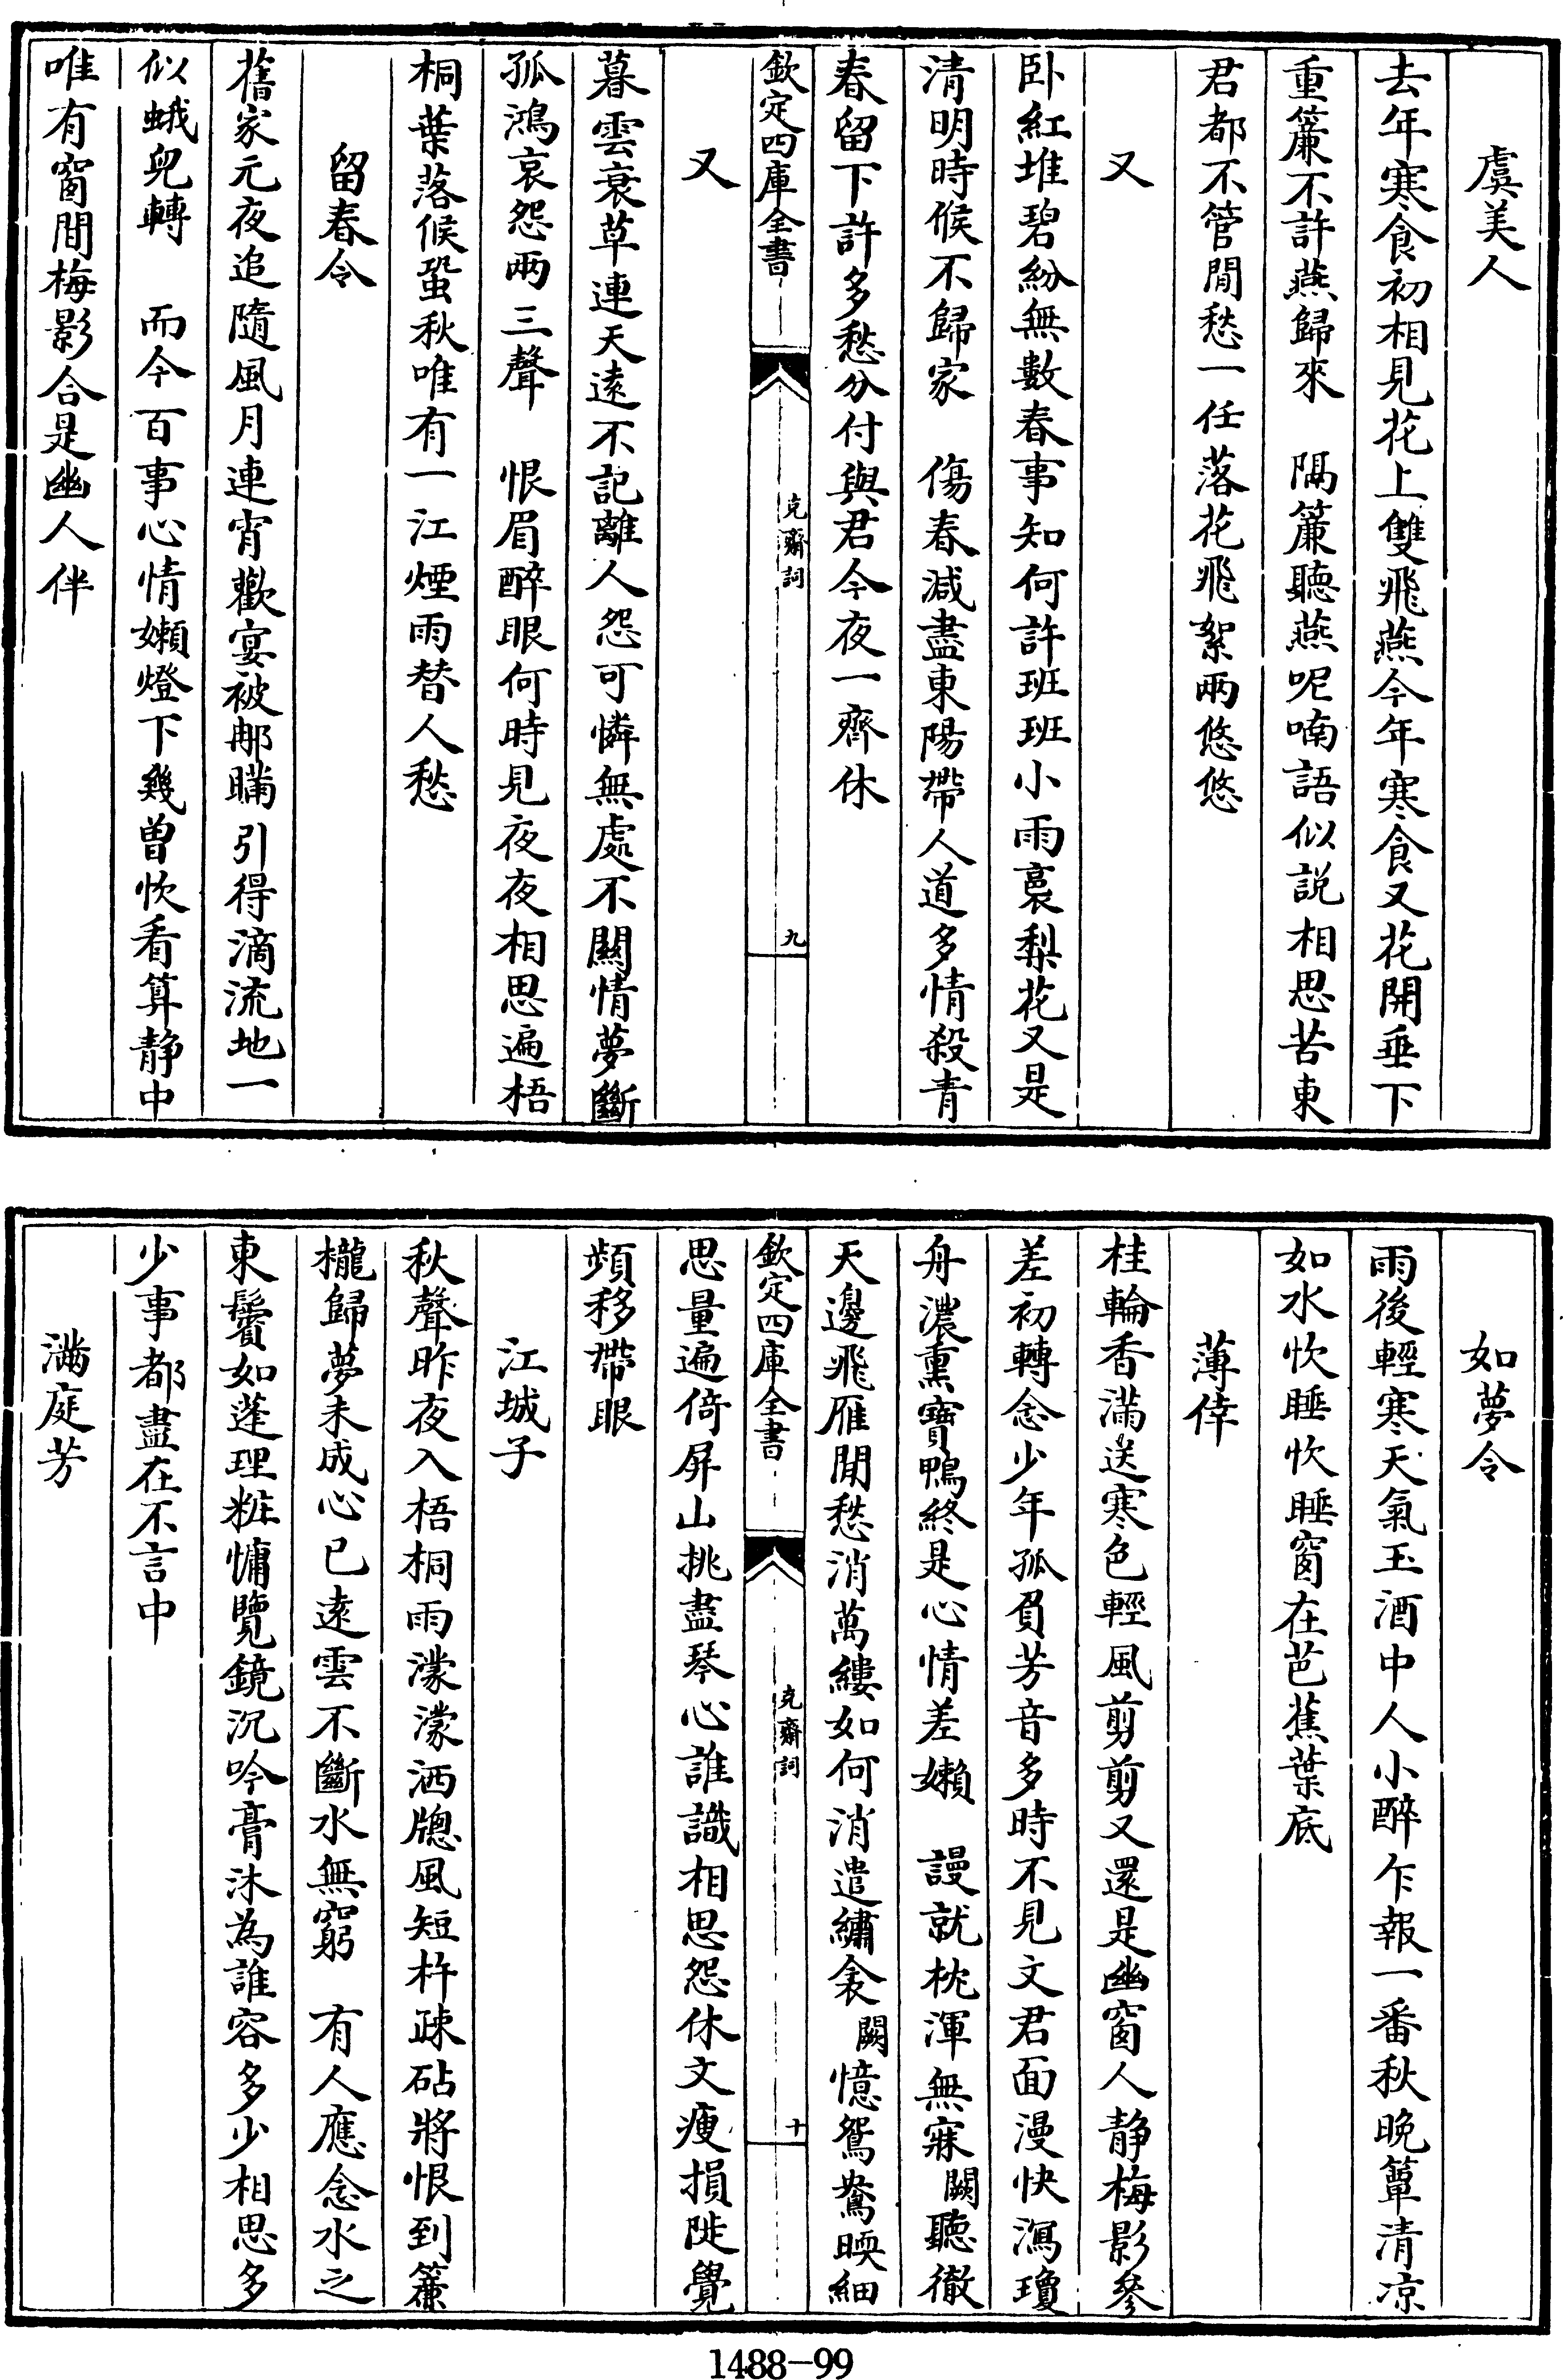 虞美人
去年寒食初相見花上雙飛燕今年寒食又花開垂下
重簾不許燕歸來　隔簾聽燕呢喃語似説相思苦東
君都不管閒愁一任落花飛絮兩悠悠
又
卧紅堆碧紛無數春事知何許班班小雨裛梨花又是
清明時候不歸家　傷春減盡東陽帶人道多情殺青
春留下許多愁分付與君今夜一齊休
欽定四庫全書
克齋詞
九
又
暮雲衰草連天逺不記離人怨可憐無處不闗情夢斷
孤鴻哀怨兩三聲　恨眉醉眼何時見夜夜相思遍梧
桐葉落候蛩秋唯有一江煙雨替人愁
留春令
舊家元夜追隨風月連宵歡宴被那瞞引得滴流地一
似蛾兒轉　而今百事心情嬾燈下幾曾忺看算静中
唯有窗間梅影合是幽人伴
如夢令
雨後輕寒天氣玉酒中人小醉乍報一番秋晚簟清凉
如水忺睡忺睡窗在芭蕉葉底
薄倖
桂輪香滿送寒色輕風剪剪又還是幽窗人静梅影參
差初轉念少年孤負芳音多時不見文君面漫快瀉瓊
舟濃熏寶鴨終是心情差嬾　謾就枕渾無寐闕聽徹
天邊飛雁閒愁消萬縷如何消遣繡衾闕憶鴛鴦暎細
欽定四庫全書
克齋詞
十
思量遍倚屏山挑盡琴心誰識相思怨休文瘦損陡覺
頻移帶眼
江城子
秋聲昨夜入梧桐雨濛濛洒牕風短杵疎砧將恨到簾
櫳歸夢未成心已逺雲不斷水無窮　有人應念水之
東鬢如蓬理粧慵覽鏡沉吟膏沐為誰容多少相思多
少事都盡在不言中
滿庭芳
1488-99